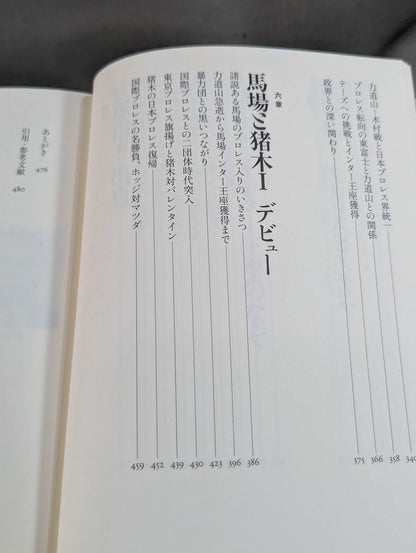 力道山―木村戦と日本プロレス界統一 340
プロレス転向の東富士と力道山との関係 358
テーズへの挑戦とインター王座獲得 366
政界との深い関わり 375
六章
馬場と猪木Ⅰ デビュー
諸説ある馬場のプロレス入りのいきさつ 386
力道山急逝から馬場インター王座獲得まで 396
暴力団との黒いつながり 423
国際プロレスとの二団体時代突入 430
東京プロレス旗揚げと猪木対バレンタイン 439
猪木の日本プロレス復帰 452
国際プロレスの名勝負、ホッジ対マツダ 459
あとがき 476
引用・参考文献 480